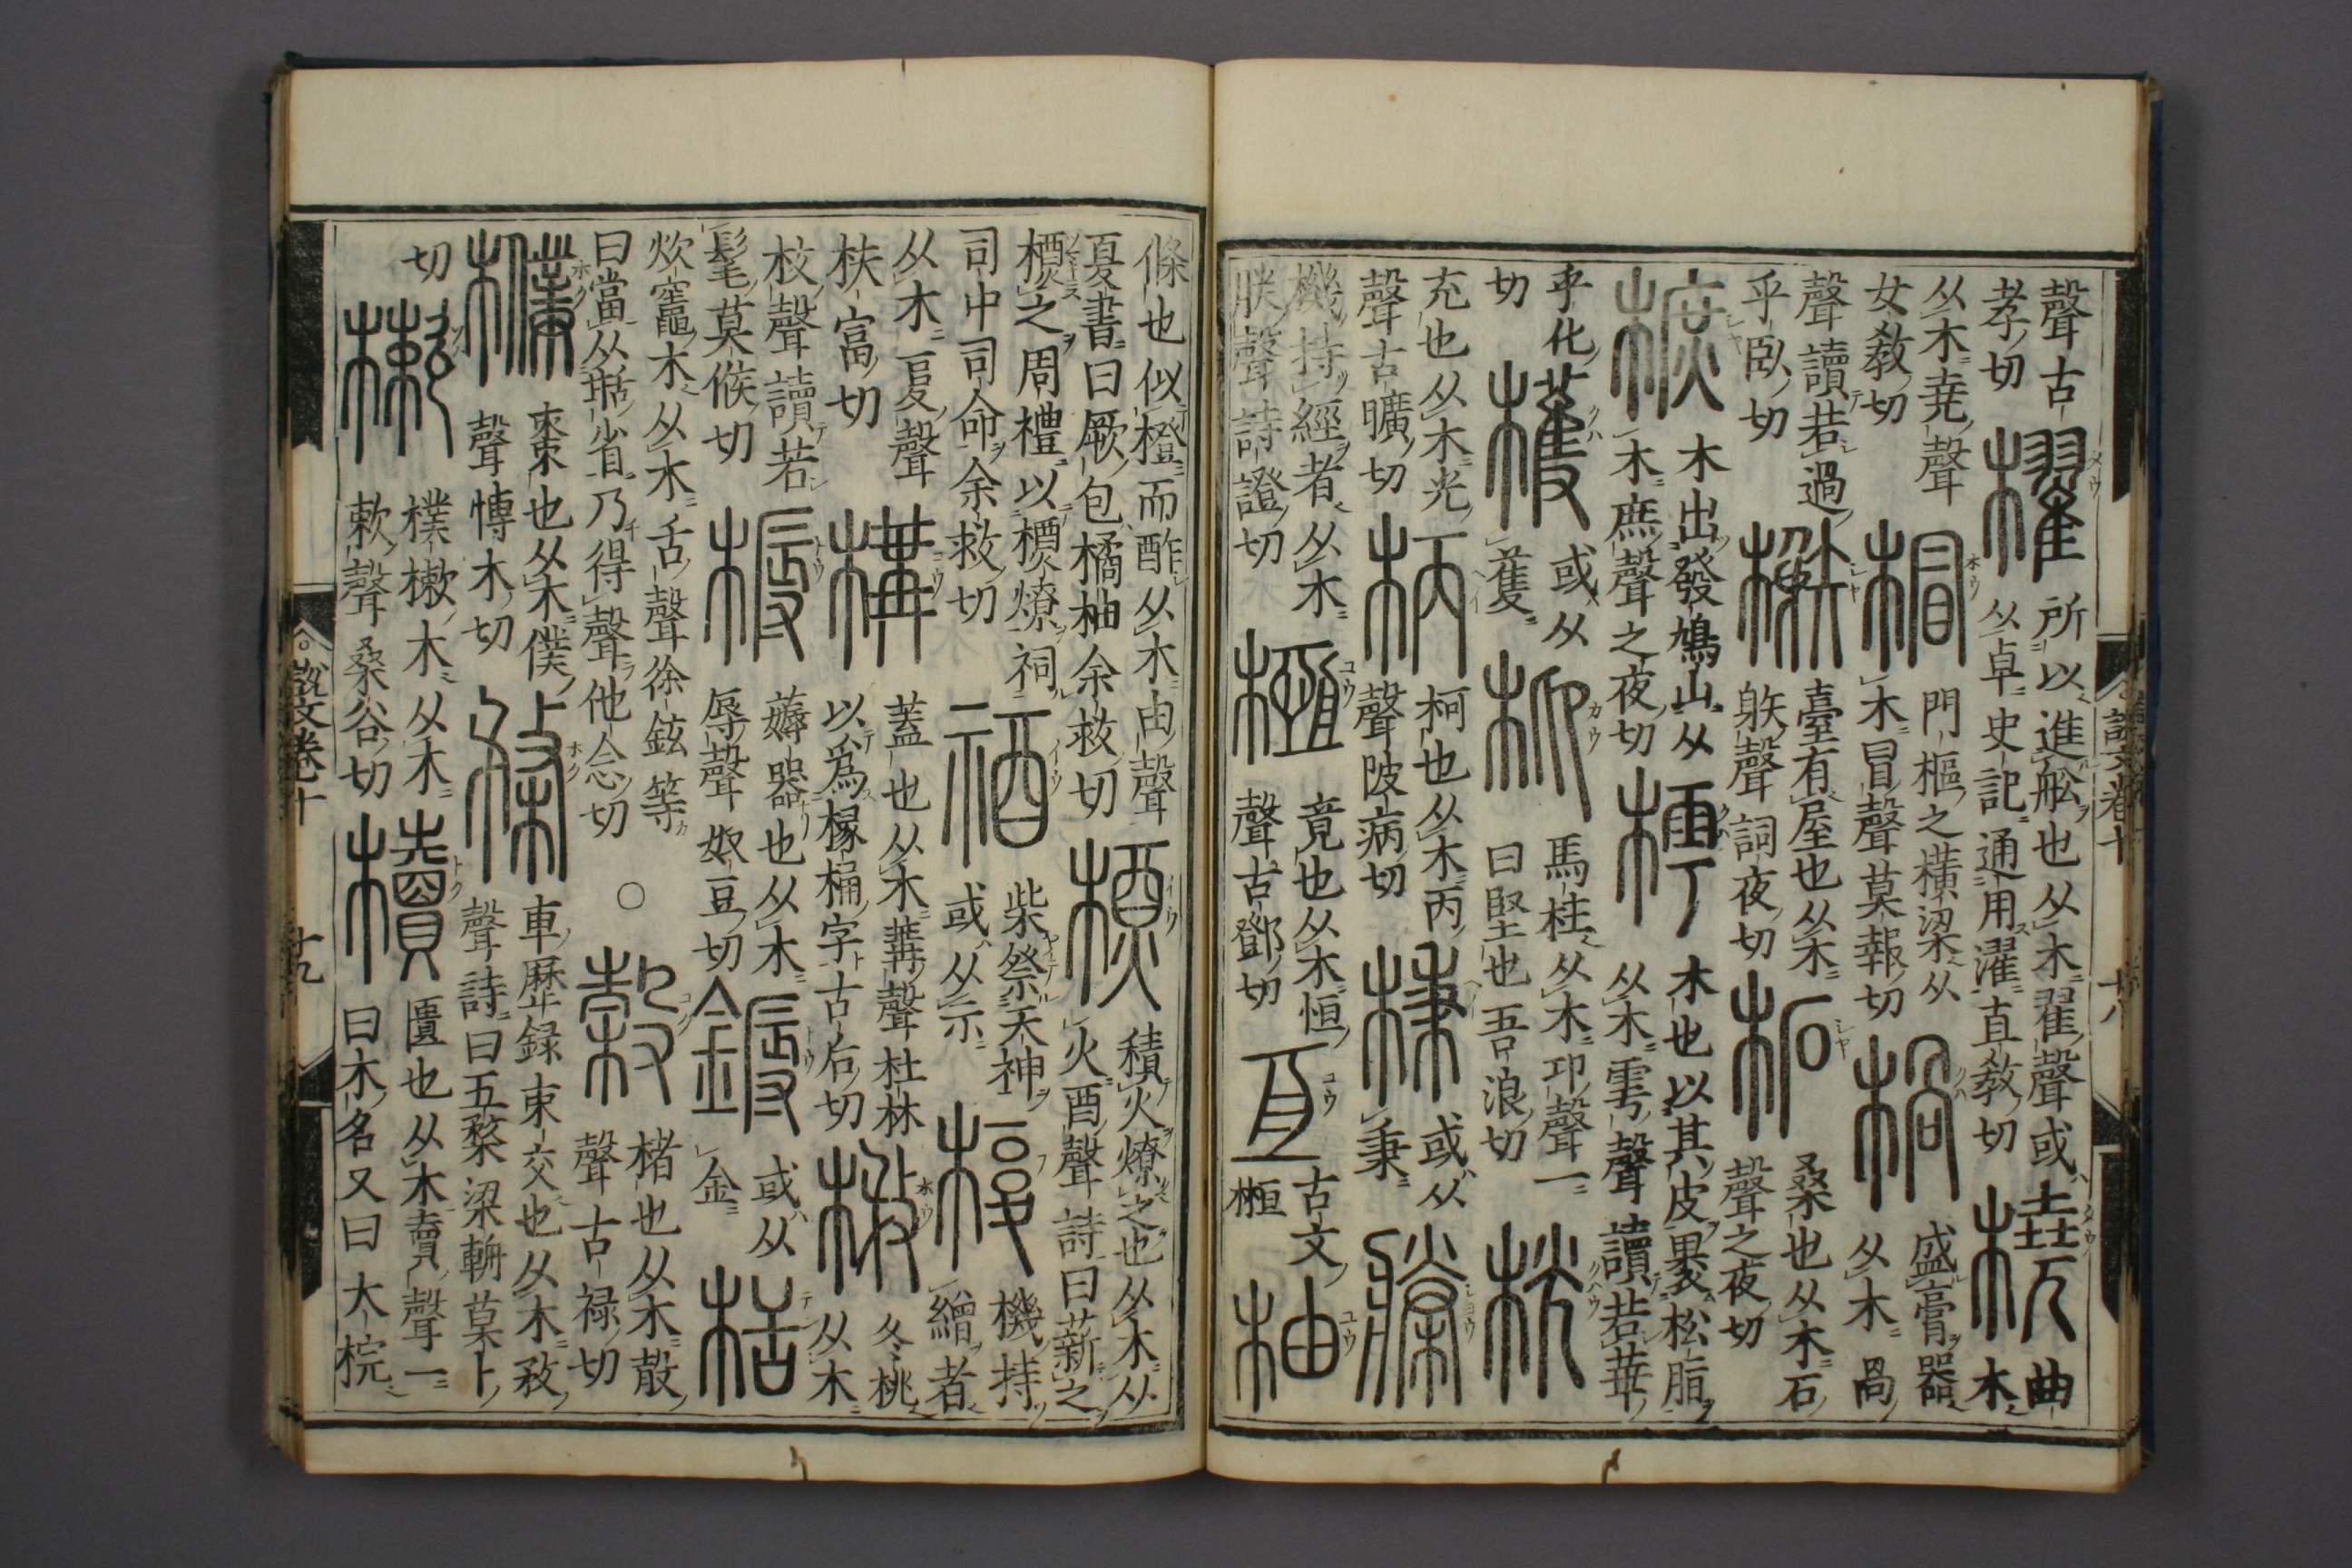 聲古
孝切
櫂
所以進舩也从木翟聲或
从卓史記通用濯直敎切
橈
曲
木
从木堯聲
女敎切
㮘
門樞之橫梁从
木冒聲莫報切
楇
盛膏器
从木咼
聲讀若過
乎臥切
榭
臺有屋也从木
躲聲詞夜切
柘
桑也从木石
聲之夜切
樜
木出發鳩山从
木庶聲之夜切
樗
木也以其皮裹松脂
从木雩聲讀若華
乎化
切
檴
或从
蒦
枊
馬柱从木卬聲一
曰堅也吾浪切
桄
充也从木光
聲古曠切
柄
柯也从木丙
聲陂病切
棅
或从
秉
榺
機持經者从木
朕聲詩證切
㮓
竟也从木恒
聲古鄧切
亙
古文
㮓
柚
說文卷十 廿八
條也似橙而酢从木由聲
夏書曰厥包橘柚余救切
槱
積火燎之也从木从
火酉聲詩曰薪之
槱之周禮以槱燎祠
司中司命余救切
禉
柴祭天神
或从示
椱
機持
繒者
从木复聲
扶富切
構
蓋也从木冓聲杜林
以爲椽桷字古后切
冬桃
从木
敄聲讀若
髦莫候切
槈
薅器也从木
辱聲奴豆切
鎒
或从
金
栝
炊竈木从木舌聲徐鉉等
曰當从甛省乃得聲他念切
○
榖
楮也从木㱿
聲古禄切
㯷
棗也从木僕
聲博木切
楘
車歷録束交也从木敄
聲詩曰五楘梁輈莫卜
切
樕
樸樕木从木
欶聲桑谷切
櫝
匱也从木賣聲一
曰木名又曰大梡
說文卷十 廿九